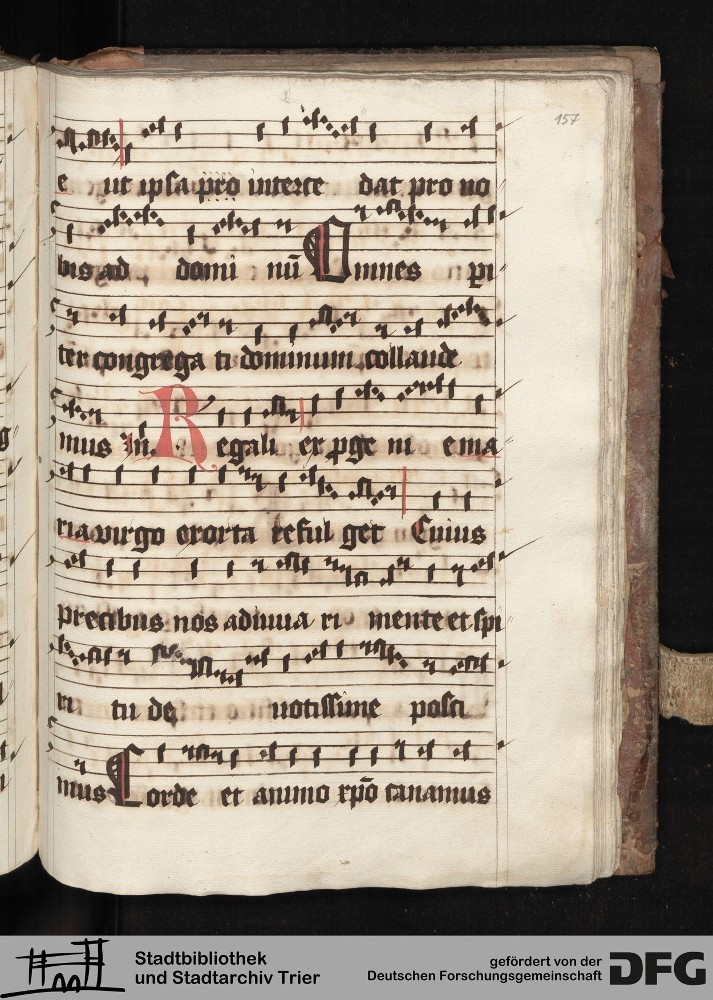 157
e ut ipsa pro interce dat pro no
bis ad domi nū Omnes pi
ter congrega ti dominum collaude
mus Añ. Regali ex pge ni e ma
ria virgo exorta reful get Cuius
precibus nos adiuua ri mente et spi
ri tu de uotissime posci
mus Corde et animo xpō canamus
Stadtbibliothek
und Stadtarchiv Trier
gefördert von der
Deutschen Forschungsgemeinschaft
DFG